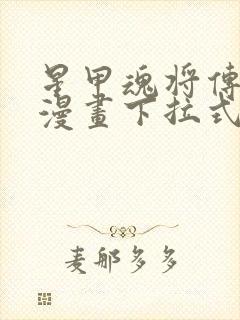 星甲魂将傳
漫畫下拉式
麦郁多多